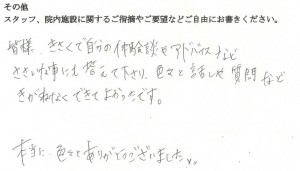 その他
スタッフ、院内施設に関するご指摘やご要望などご自由にお書きください。
皆様、きさくで自分の体験談やアドバイスなど
ささいな事にも答えて下さり、色々と話しや質問など
きがねなくできてよかったです。
本当に色々とありがとうございました。